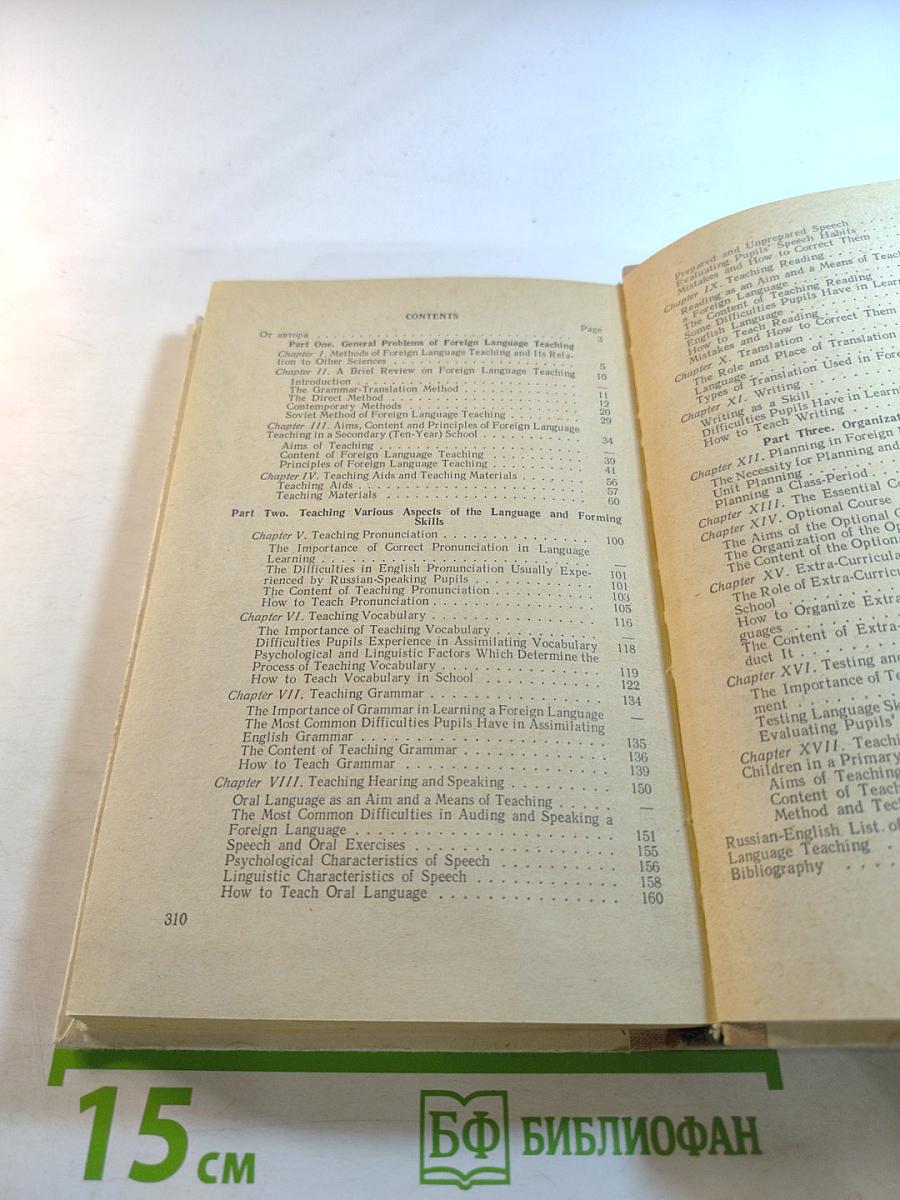 CONTENTS
Page
От автора . . . . . . . . . . . . . . . . . . . . 3
Part One. General Problems of Foreign Language Teaching
Chapter I. Methods of Foreign Language Teaching and Its Rela-
tion to Other Sciences . . . . . . . . . . . . . . . . 5
Chapter II. A Brief Review on Foreign Language Teaching 10
Introduction . . . . . . . . . . . . . . . . —
The Grammar-Translation Method . . . . . . . . 11
The Direct Method . . . . . . . . . . . . . . 12
Contemporary Methods . . . . . . . . . . . . 20
Soviet Method of Foreign Language Teaching . . . . . 29
Chapter III. Aims, Content and Principles of Foreign Language
Teaching in a Secondary (Ten-Year) School . . . . . . . 34
Aims of Teaching . . . . . . . . . . . . . . —
Content of Foreign Language Teaching . . . . . . . 39
Principles of Foreign Language Teaching . . . . . . . 41
Chapter IV. Teaching Aids and Teaching Materials . . . . . 56
Teaching Aids . . . . . . . . . . . . . . . 57
Teaching Materials . . . . . . . . . . . . . 60
Part Two. Teaching Various Aspects of the Language and Forming
Skills
Chapter V. Teaching Pronunciation . . . . . . . . . . 100
The Importance of Correct Pronunciation in Language
Learning . . . . . . . . . . . . . . . . . —
The Difficulties in English Pronunciation Usually Expe-
rienced by Russian-Speaking Pupils . . . . . . . . 101
The Content of Teaching Pronunciation . . . . . . . 101
How to Teach Pronunciation . . . . . . . . . . 103
105
Chapter VI. Teaching Vocabulary . . . . . . . . . . . 116
The Importance of Teaching Vocabulary . . . . . . . —
Difficulties Pupils Experience in Assimilating Vocabulary 118
Psychological and Linguistic Factors Which Determine the
Process of Teaching Vocabulary . . . . . . . . . 119
How to Teach Vocabulary in School . . . . . . . . 122
Chapter VII. Teaching Grammar . . . . . . . . . . . 134
The Importance of Grammar in Learning a Foreign Language —
The Most Common Difficulties Pupils Have in Assimilating
English Grammar . . . . . . . . . . . . . . 135
The Content of Teaching Grammar . . . . . . . . . 136
How to Teach Grammar . . . . . . . . . . . . 139
Chapter VIII. Teaching Hearing and Speaking . . . . . . 150
Oral Language as an Aim and a Means of Teaching . . . . . —
The Most Common Difficulties in Auding and Speaking a
Foreign Language . . . . . . . . . . . . . . 151
Speech and Oral Exercises . . . . . . . . . . . 155
Psychological Characteristics of Speech . . . . . . . 156
Linguistic Characteristics of Speech . . . . . . . . 158
How to Teach Oral Language . . . . . . . . . . 160
310
Prepared and Unprepared Speech
Evaluating Pupils' Speech Habits
Mistakes and How to Correct Them
Chapter IX. Teaching Reading
Reading as an Aim and a Means of Teac
a Foreign Language
The Content of Teaching Reading
Some Difficulties Pupils Have in Lear
English Language
How to Teach Reading
Mistakes and How to Correct Them
Chapter X. Translation
The Role and Place of Translation
Language
Types of Translation Used in Fore
Chapter XI. Writing
Writing as a Skill
Difficulties Pupils Have in Learn
How to Teach Writing
Part Three. Organizat
Chapter XII. Planning in Foreign
The Necessity for Planning and
Unit Planning
Planning a Class-Period
Chapter XIII. The Essential Co
Chapter XIV. Optional Course
The Aims of the Optional C
The Organization of the Op
The Content of the Optiona
Chapter XV. Extra-Curricula
The Role of Extra-Curricu
School
How to Organize Extra
guages
The Content of Extra-
duct It
Chapter XVI. Testing and
The Importance of Te
ment
Testing Language Sk
Evaluating Pupils'
Chapter XVII. Teachi
Children in a Primary
Aims of Teaching
Content of Teach
Method and Tec
Russian-English List of
Language Teaching
Bibliography
15 см
БФ БИБЛИОФАН